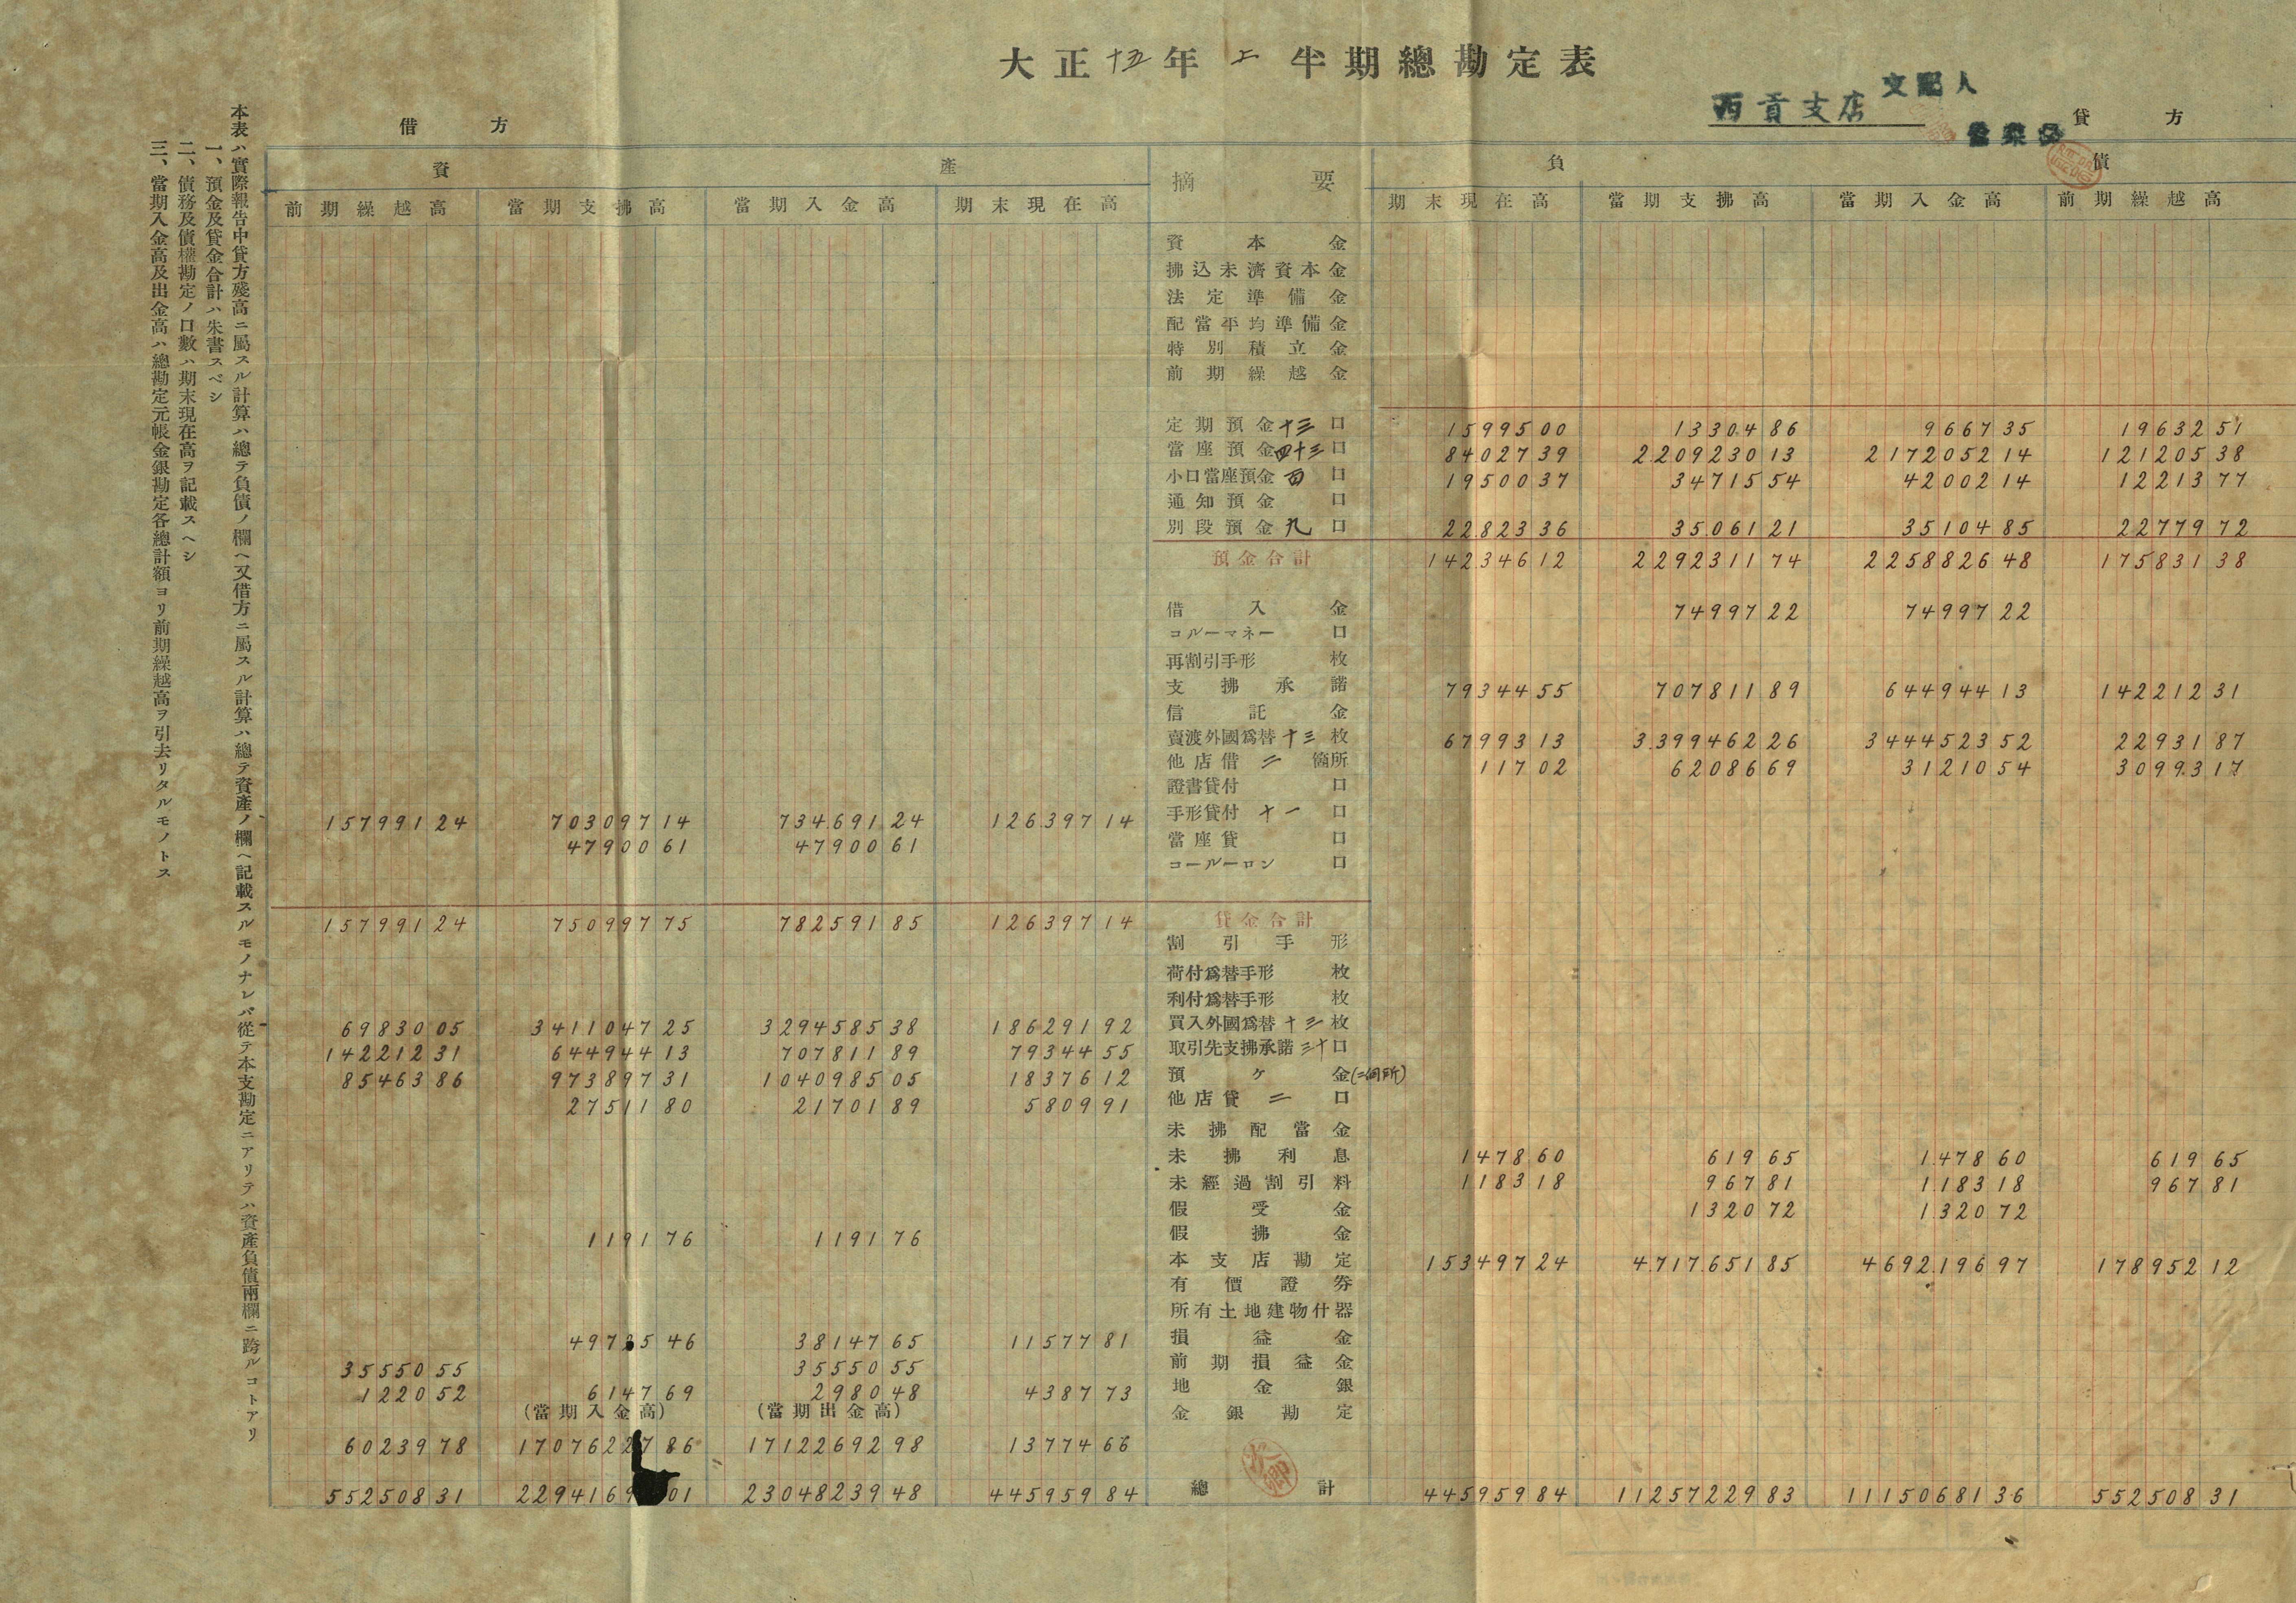 大正十五年上半期總勘定表
西貢支店
支配人
營業係
借方
貸方
本表ハ實際報告中貸方殘高ニ屬スル計算ハ總テ負債ノ欄ヘ又借方ニ屬スル計算ハ總テ資產ノ欄ヘ記載スルモノナレバ從テ本支勘定ニアリテハ資產負債兩欄ニ跨ルコトアリ
一、預金及貸金合計ハ朱書スベシ
二、債務及債權勘定ノ口數ハ期末現在高ヲ記載スヘシ
三、當期入金高及出金高ハ總勘定元帳金銀勘定各總計額ヨリ前期繰越高ヲ引去リタルモノトス
資產 摘要 負債
前期繰越高 當期支拂高 當期入金高 期末現在高 期末現在高 當期支拂高 當期入金高 前期繰越高
資本金
拂込未濟資本金
法定準備金
配當平均準備金
特別積立金
前期繰越金
定期預金十三口 15995 00 13304 86 9667 35 19632 51
當座預金四十三口 84027 39 2209230 13 2172052 14 121205 38
小口當座預金百口 19500 37 34715 54 42002 14 12213 77
通知預金口
別段預金九口 22823 36 35061 21 35104 85 22779 72
預金合計 142346 12 2292311 74 2258826 48 175831 38
借入金 74997 22 74997 22
コルーマネー口
再割引手形枚
支拂承諾 79344 55 707811 89 644944 13 142212 31
信託金
賣渡外國爲替十三枚 67993 13 3399462 26 3444523 52 22931 87
他店借二箇所 117 02 62086 69 31210 54 30993 17
證書貸付口
157991 24 703097 14 734691 24 126397 14 手形貸付十一口
47900 61 47900 61 當座貸口
コールーロン口
157991 24 750997 75 782591 85 126397 14 貸金合計
割引手形
荷付爲替手形枚
利付爲替手形枚
69830 05 3411047 25 3294585 38 186291 92 買入外國爲替十三枚
142212 31 644944 13 707811 89 79344 55 取引先支拂承諾三十口
85463 86 973897 31 1040985 05 18376 12 預ケ金(二個所)
27511 80 21701 89 5809 91 他店貸二口
未拂配當金
未拂利息 1478 60 619 65 1478 60 619 65
未經過割引料 1183 18 967 81 1183 18 967 81
假受金 1320 72 1320 72
1191 76 1191 76 假拂金
本支店勘定 153497 24 4717651 85 4692196 97 178952 12
有價證券
所有土地建物什器
49725 46 38147 65 11577 81 損益金
35550 55 35550 55 前期損益金
1220 52 6147 69 2980 48 4387 73 地金銀
(當期入金高) (當期出金高) 金銀勘定
60239 78 17076227 86 17122692 98 13774 66
552508 31 2294169 01 23048239 48 445959 84 總計 445959 84 11257229 83 11150681 36 552508 31